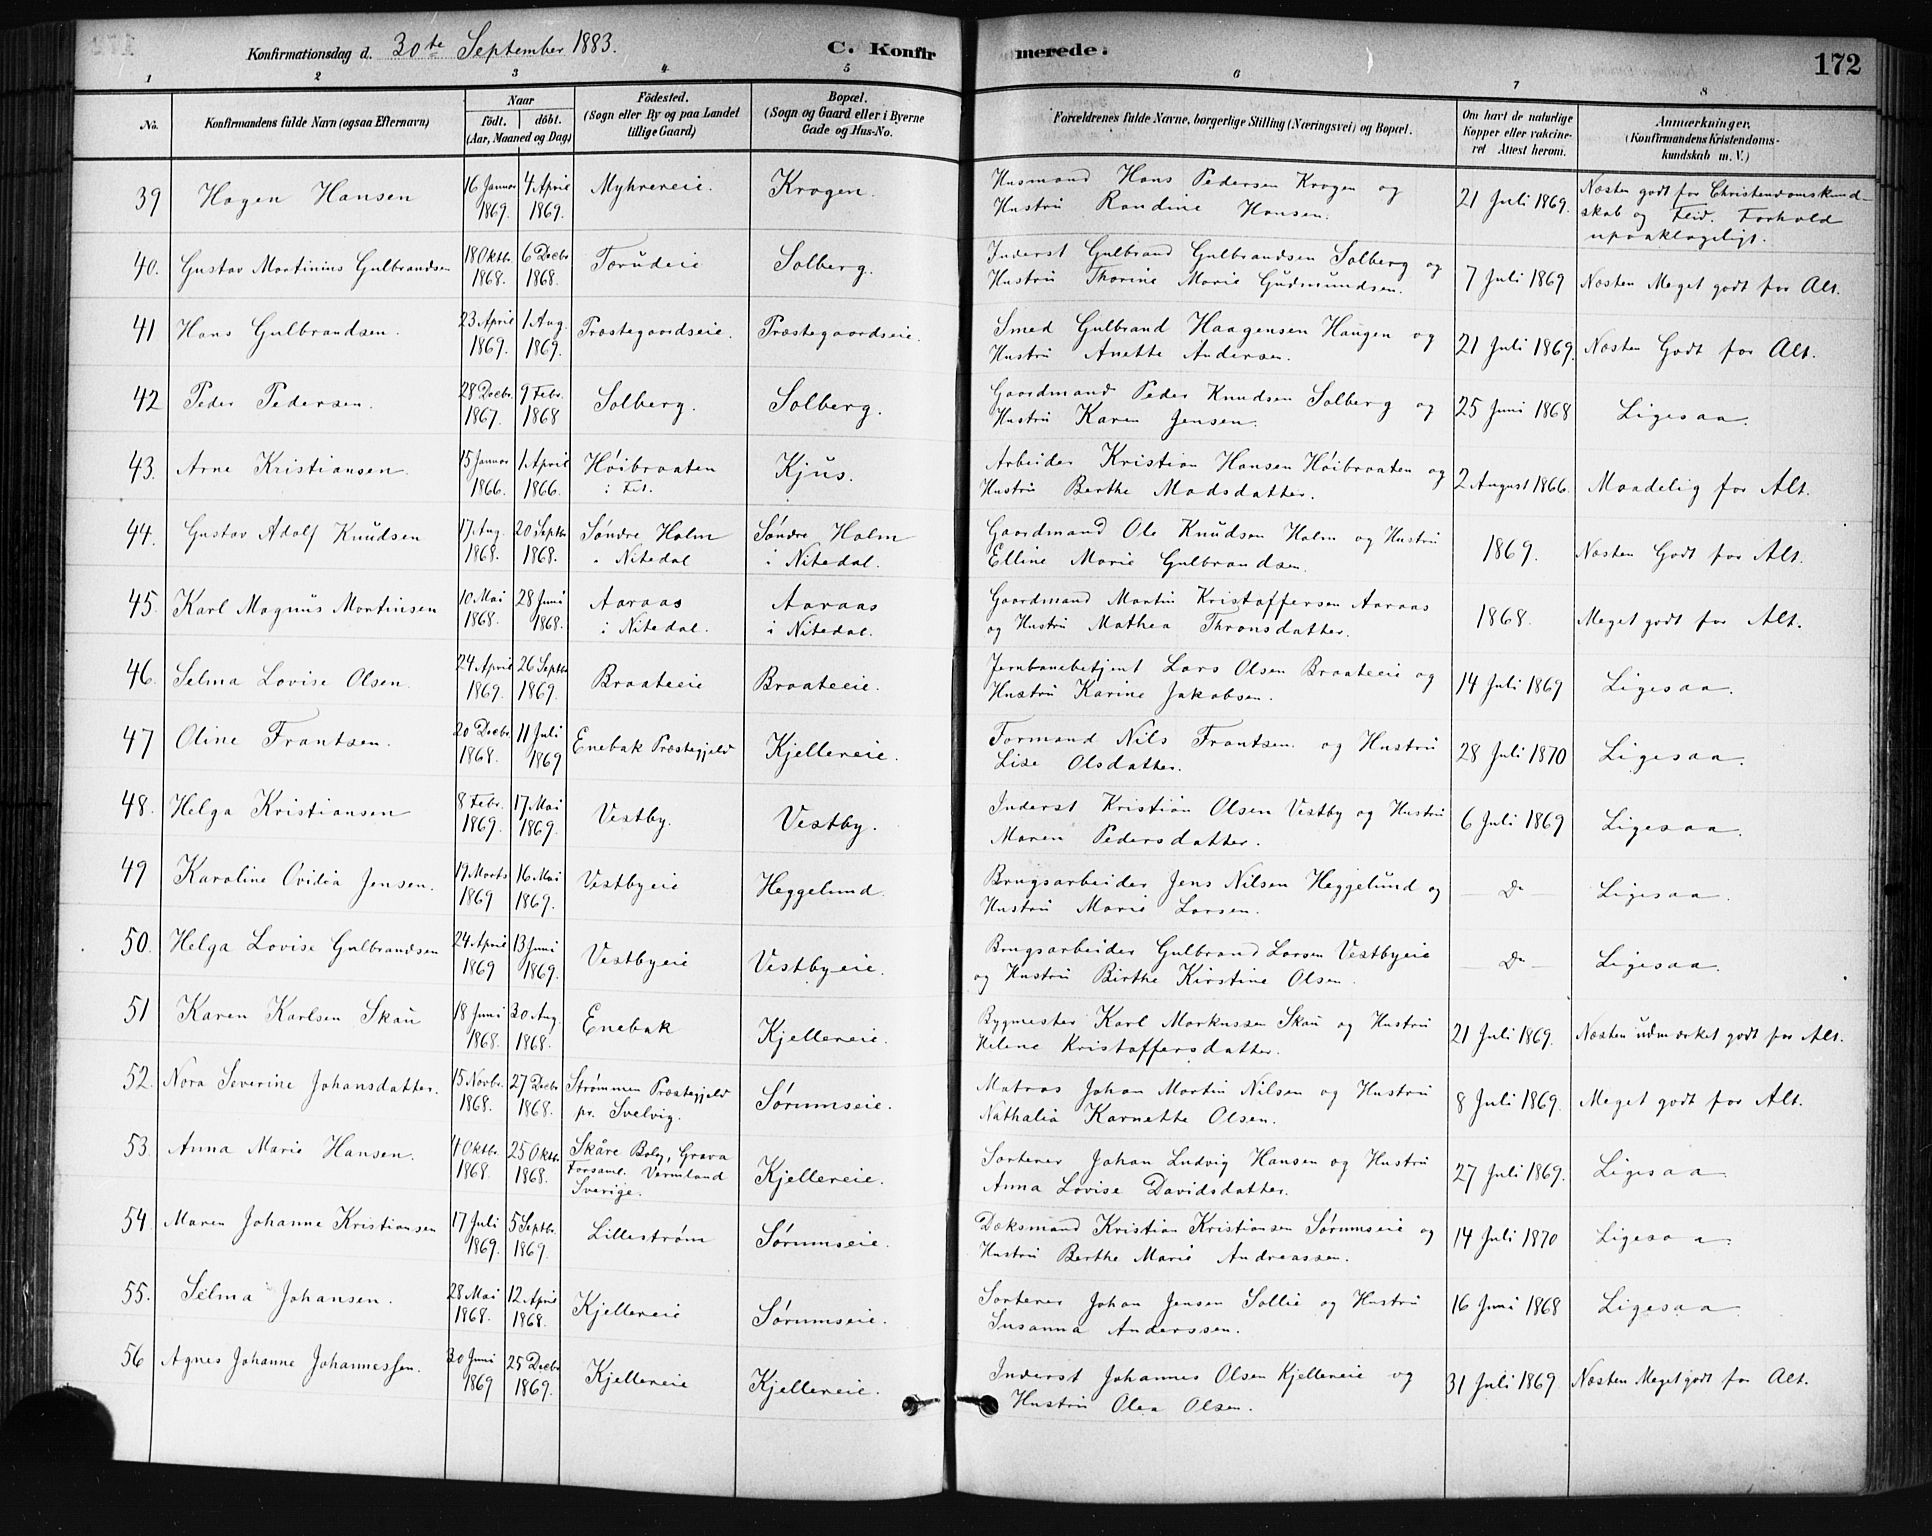 Konfirmationsdag d. 30te September 1883. C. Konfirmerede. 172
1 2 3 4 5 6 7 8
No. Konfirmandens fulde Navn (ogsaa Efternavn) Naar Født. døbt. (Aar, Maaned og Dag) Födested. (Sogn eller By og paa Landet tillige Gaard) Bopæl. (Sogn og Gaard eller i Byerne Gade og Hus-No. Forældrenes fulde Navne, borgerlige Stilling (Næringsvei) og Bopæl. Om havt de naturlige Kopper eller vakcineret Attest herom. Anmærkninger. (Konfirmandens Kristendomskundskab m. V.)
39 Hagen Hansen 16 Januar 1869. 4 April 1869. Myhrereie. Krogen. Husmand Hans Pedersen Krogen og Hustrü Randine Hansen. 21 Juli 1869. Næsten godt for Christendomskundskab og Flid. Forhold upaaklageligt.
40. Gustav Martinius Gulbrandsen 18 Oktbr. 1868. 6 Decbr 1868. Torüdeie Solberg. Inderst Gulbrand Gulbrandsen Solberg og Hustrü Thorine Marie Güdmündsen. 7 Juli 1869 Næsten Meget godt for Alt.
41 Hans Gulbrandsen. 23 April 1869. 1 Aug. 1869. Præstegaardseie. Præstegaardseie. Smed Gulbrand Haagensen Haugen og Hustrü Anette Andersen. 21 Juli 1869. Næsten Godt for Alt.
42 Peder Pedersen. 28 Decbr. 1867. 9 Febr. 1868 Solberg. Solberg. Gaardmand Peder Knudsen Solberg og Hustrü Karen Jensen. 25 Juni 1868 Ligesaa.
43. Arne Kristiansen. 15 Januar 1866. 1 April 1866. Høibraaten i Fet. Kjüs. Arbeider Kristian Hansen Høibraaten og Hustrü Berthe Madsdatter. 2 August 1866. Maadelig for Alt.
44. Gustav Adolf Knüdsen 17 Aug. 1868. 20 Septbr 1868. Søndre Holm i Nitedal Søndre Holm i Nitedal. Gaardmand Ole Knüdsen Holm og Hustrü Elline Marie Gulbrandsen. 1869. Næsten Godt for Alt.
45. Karl Magnüs Martinsen 10 Mai 1868. 28 Juni 1868. Aaraas i Nitedal. Aaraas i Nitedal. Gaardmand Martin Kristoffersen Aaraas og Hustrü Mathea Thronsdatter. 1868. Meget godt for Alt.
46. Selma Lovise Olsen. 24 April 1869. 26 Septbr 1869. Braateeie Braateeie. Jernbanebetjent Lars Olsen Braateeie og Hustrü Karine Jakobsen. 14 Juli 1869 Ligesaa.
47 Oline Frantsen. 20 Decbr. 1868. 11 Juli 1869 Enebak Præstegjeld Kjellereie. Formand Nils Frantsen og Hustrü Lise Olsdatter. 28 Juli 1870 Ligesaa.
48. Helga Kristiansen 8 Febr. 1869. 17 Mai 1869. Vestby. Vestby. Inderst Kristian Olsen Vestby og Hustrü Maren Pedersdatter. 6 Juli 1869 Ligesaa.
49 Karoline Ovidia Jensen. 19 Marts 1869 16 Mai 1869. Vestbyeie Heggelund. Brugsarbeider Jens Nilsen Heggelund og Hustrü Marie Larsen. — Do Ligesaa.
50. Helga Lovise Gulbrandsen 24 April 1869 13 Juni 1869. Vestbyeie Vestbyeie. Brugsarbeider Gulbrand Larsen Vestbyeie og Hustrü Birthe Kirstine Olsen. — Do — Ligesaa.
51 Karen Karlsen Skaü 18 Juni 1868. 30 Aug. 1868. Enebak Kjellereie. Bygmester Karl Markussen Skaü og Hustrü Helene Kristoffersdatter. 21 Juli 1869. Næsten üdmærket godt for Alt.
52. Nora Severine Johansdatter. 15 Novbr. 1868. 27 Decbr 1868. Strømmen Præstegjeld pr. Svelvig. Sørumseie. Matros Johan Martin Nilsen og Hustrü Nathalia Karnette Olsen. 8 Juli 1869. Meget godt for Alt.
53. Anna Marie Hansen. 4 Oktbr. 1868. 25 Oktbr. 1868. Skåre Boby, Grava Forsaml. Vermland Sverige. Kjellereie. Sorterer Johan Ludvig Hansen og Hustrü Anna Lovise Davidsdatter. 27 Juli 1869. Ligesaa
54. Maren Johanne Kristiansen 17 Juli 1869. 5 Septbr. 1869. Lillestrøm Sørumseie. Dæksmand Kristian Kristiansen Sørumseie og Hustrü Berthe Marie Andreassen. 14 Juli 1870 Ligesaa.
55. Selma Johansen. 28 Mai 1868. 12 April 1868. Kjellereie Sørumseie. Sorterer Johan Jensen Sollie og Hustrü Susanna Anderssen. 16 Juni 1868 Ligesaa
56 Agnes Johanne Johannessen. 30 Juni 1869 25 Decbr 1869. Kjellereie Kjellereie. Inderst Johannes Olsen Kjellereie og Hustrü Olea Olsen. 31 Juli 1869. Næsten Meget godt for Alt.